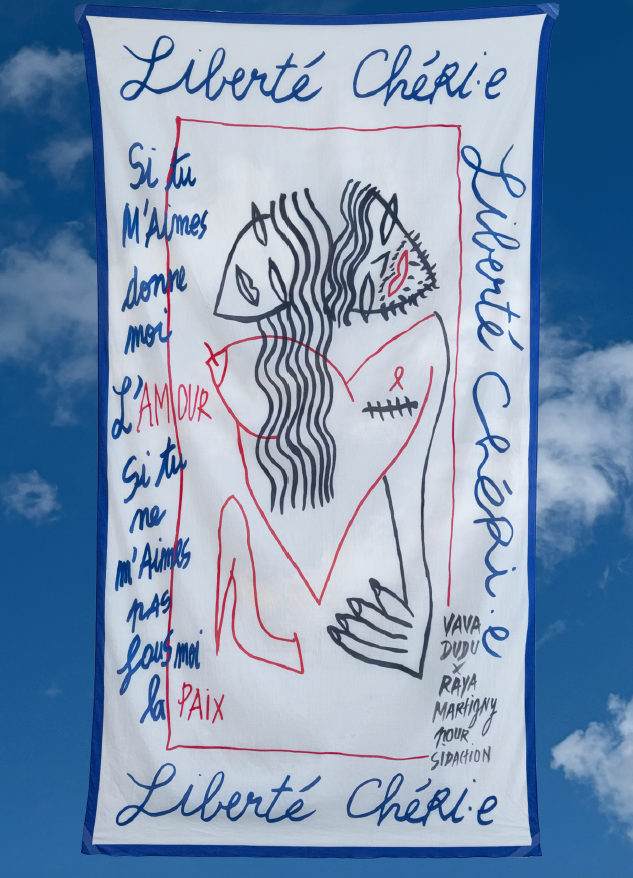 Liberté Chéri·e
Si tu
M'Aimes
donne
moi
L'AMOUR
Si tu
ne
m'Aimes
pas
fous moi
la PAIX
Liberté Chéri·e
VAVA
DUDU
x
RAYA
MARtigny
pour
SIDACtION
Liberté Chéri·e